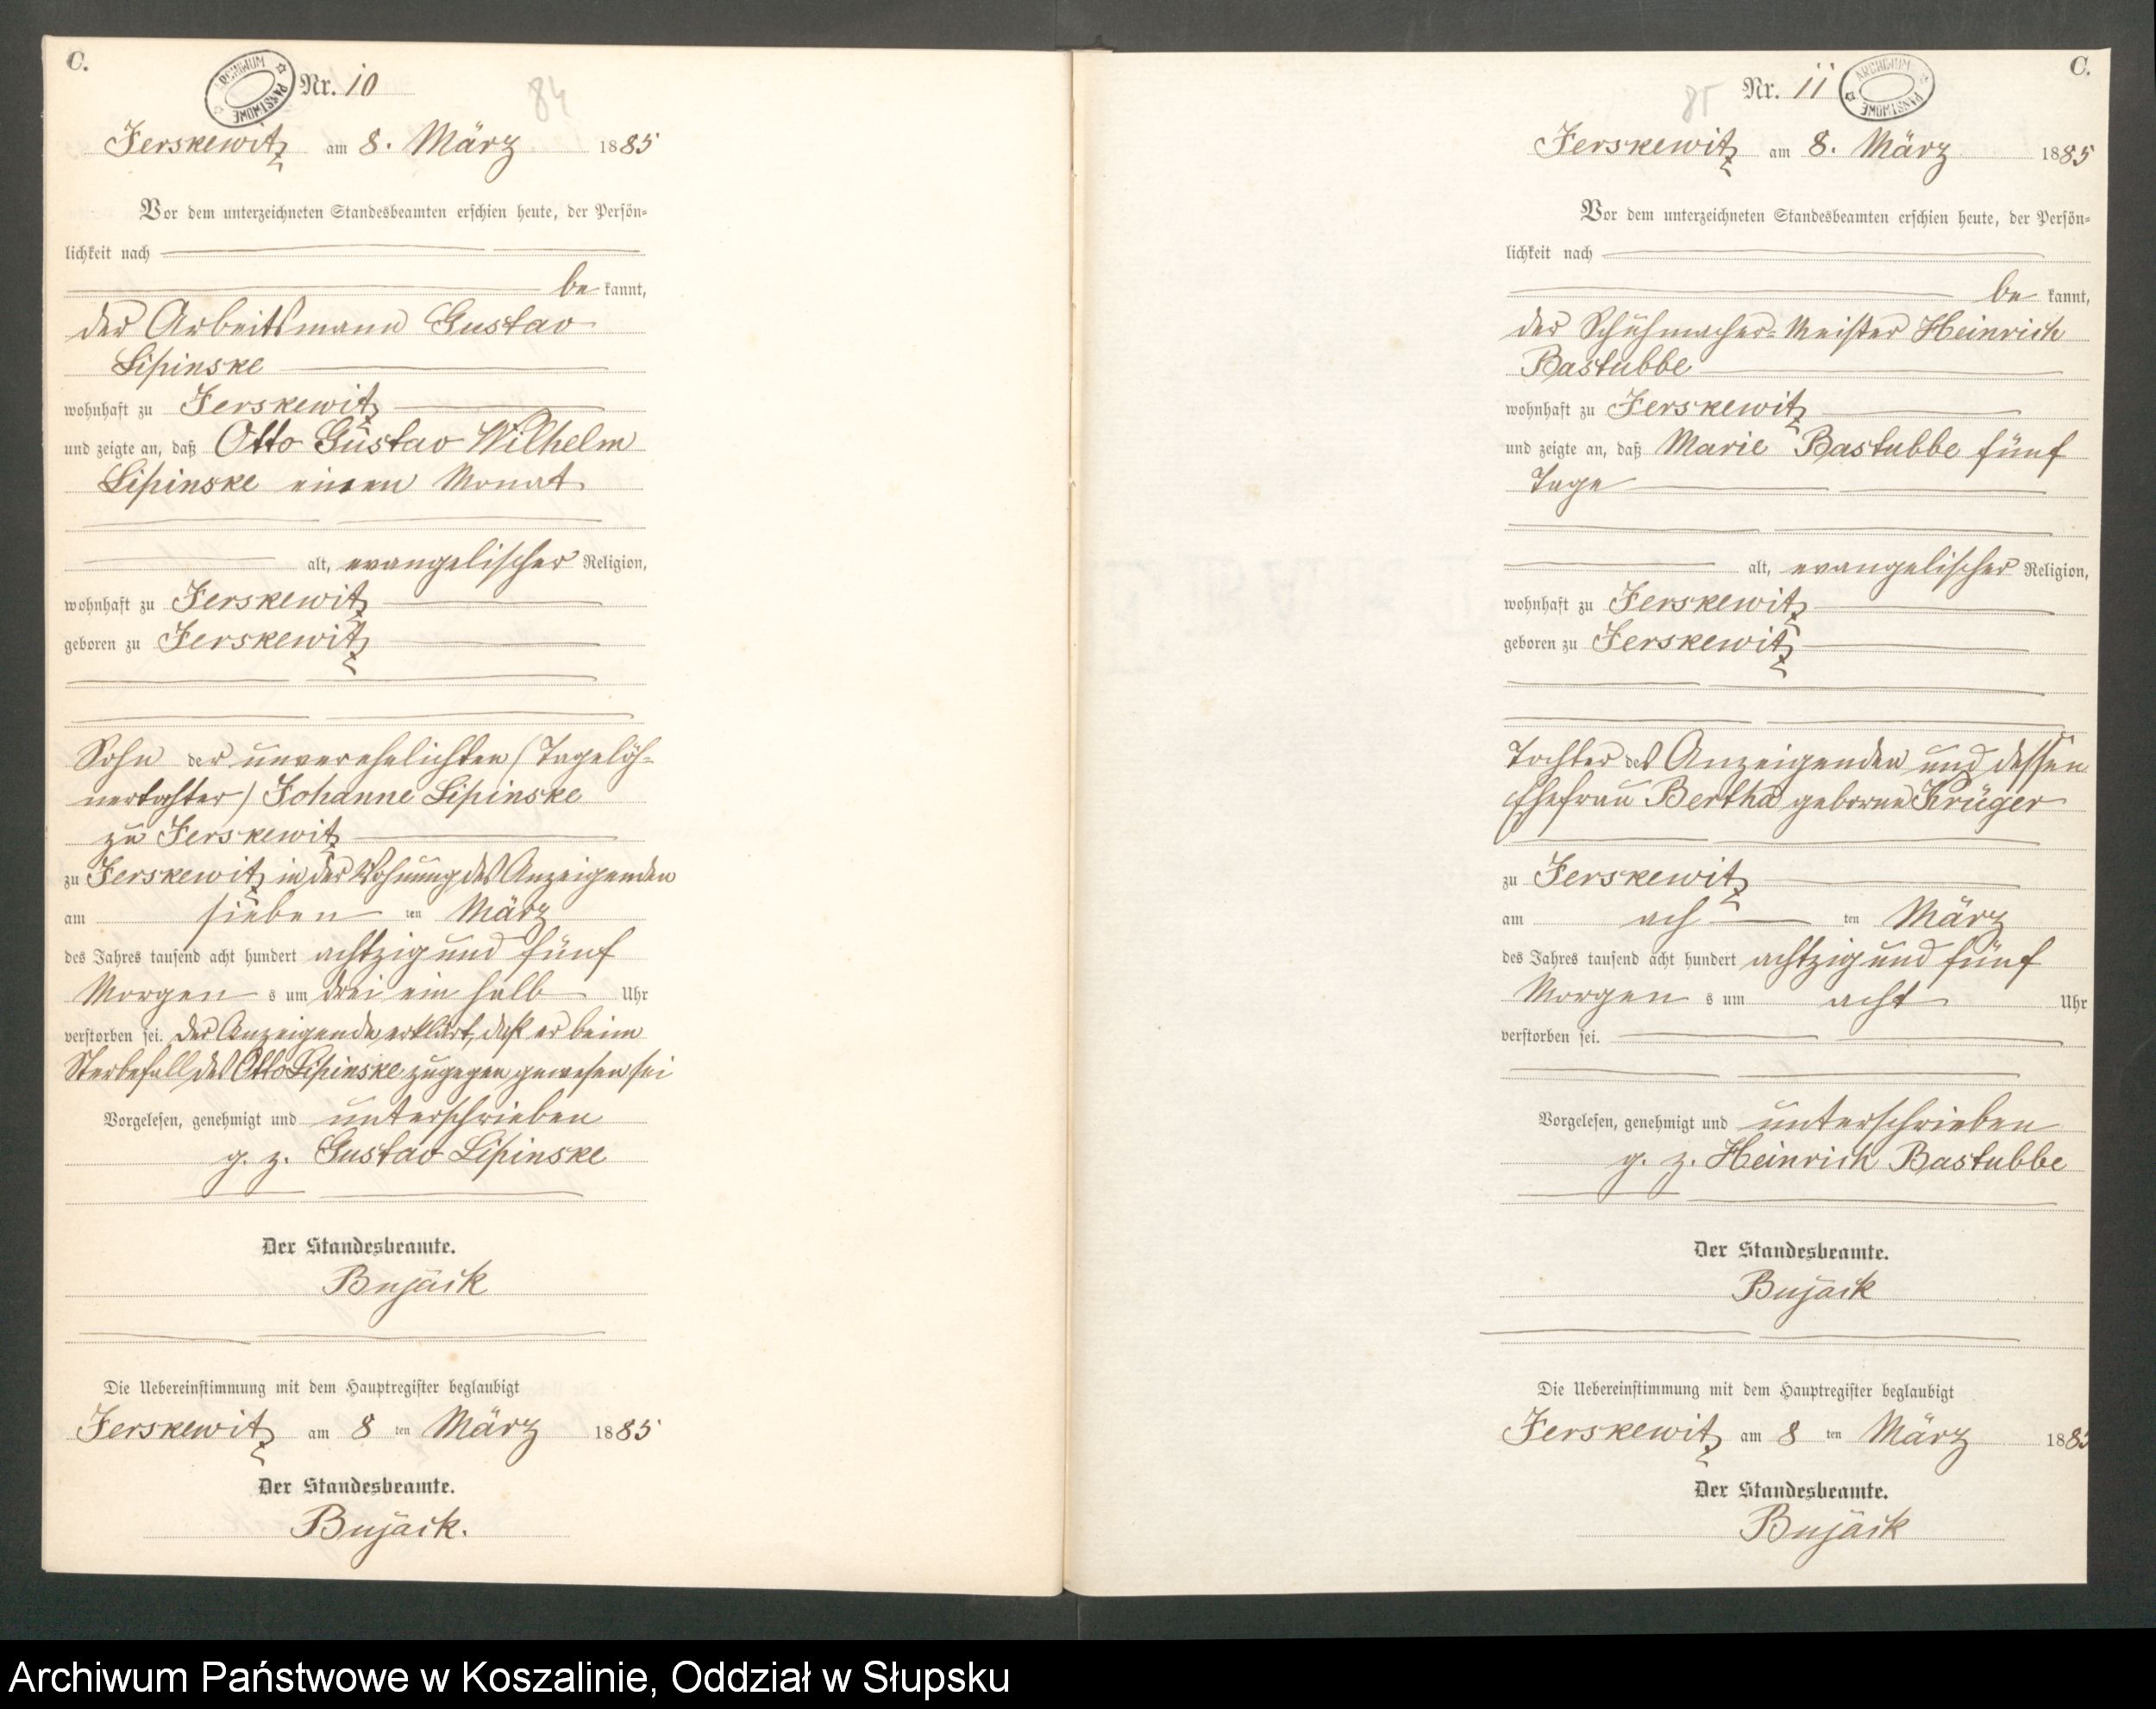 C.
ARCHIWUM PAŃSTWOWE
Nr. 10
84
Jerskewitz am 8. März 1885
Vor dem unterzeichneten Standesbeamten erschien heute, der Persön-
lichkeit nach
be kannt,
der Arbeitsmann Gustav
Lipinske
wohnhaft zu Jerskewitz
und zeigte an, daß Otto Gustav Wilhelm
Lipinske einen Monat
alt, evangelischer Religion,
wohnhaft zu Jerskewitz
geboren zu Jerskewitz
Sohn der unverehelichten (Tagelöh-
nertochter) Johanne Lipinske
zu Jerskewitz
zu Jerskewitz in der Wohnung des Anzeigenden
am sieben ten März
des Jahres tausend acht hundert achtzig und fünf
Morgen s um drei ein halb Uhr
verstorben sei. Der Anzeigende erklärt, daß er beim
Sterbefall des Otto Lipinske zugegen gewesen sei
Vorgelesen, genehmigt und unterschrieben
g. z. Gustav Lipinske
Der Standesbeamte.
Bujack
Die Uebereinstimmung mit dem Hauptregister beglaubigt
Jerskewitz am 8 ten März 1885
Der Standesbeamte.
Bujack.
C.
Nr. 11
ARCHIWUM PAŃSTWOWE
85
Jerskewitz am 8. März 1885
Vor dem unterzeichneten Standesbeamten erschien heute, der Persön-
lichkeit nach
be kannt,
der Schuhmacher-Meister Heinrich
Bastubbe
wohnhaft zu Jerskewitz
und zeigte an, daß Marie Bastubbe fünf
Tage
alt, evangelischer Religion,
wohnhaft zu Jerskewitz
geboren zu Jerskewitz
Tochter des Anzeigenden und dessen
Ehefrau Bertha geborne Krüger
zu Jerskewitz
am ach ten März
des Jahres tausend acht hundert achtzig und fünf
Morgen s um acht Uhr
verstorben sei.
Vorgelesen, genehmigt und unterschrieben
g. z. Heinrich Bastubbe
Der Standesbeamte.
Bujack
Die Uebereinstimmung mit dem Hauptregister beglaubigt
Jerskewitz am 8 ten März 1885
Der Standesbeamte.
Bujack
Archiwum Państwowe w Koszalinie, Oddział w Słupsku